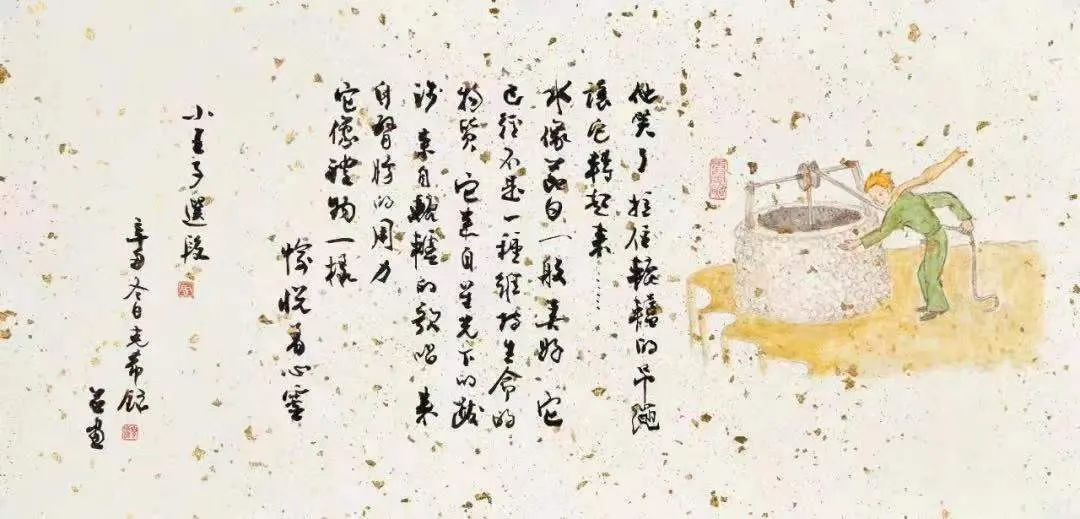 他笑了 拉住轆轤的吊繩
讓它轉起来……
水像節日一般美好 它
已經不是一種維持生命的
物質 它来自星光下的跋
涉 来自轆轤的歌唱 来
自臂膀的用力
它像禮物一樣
愉悦着心靈
小王子選段
辛丑冬日克希錄